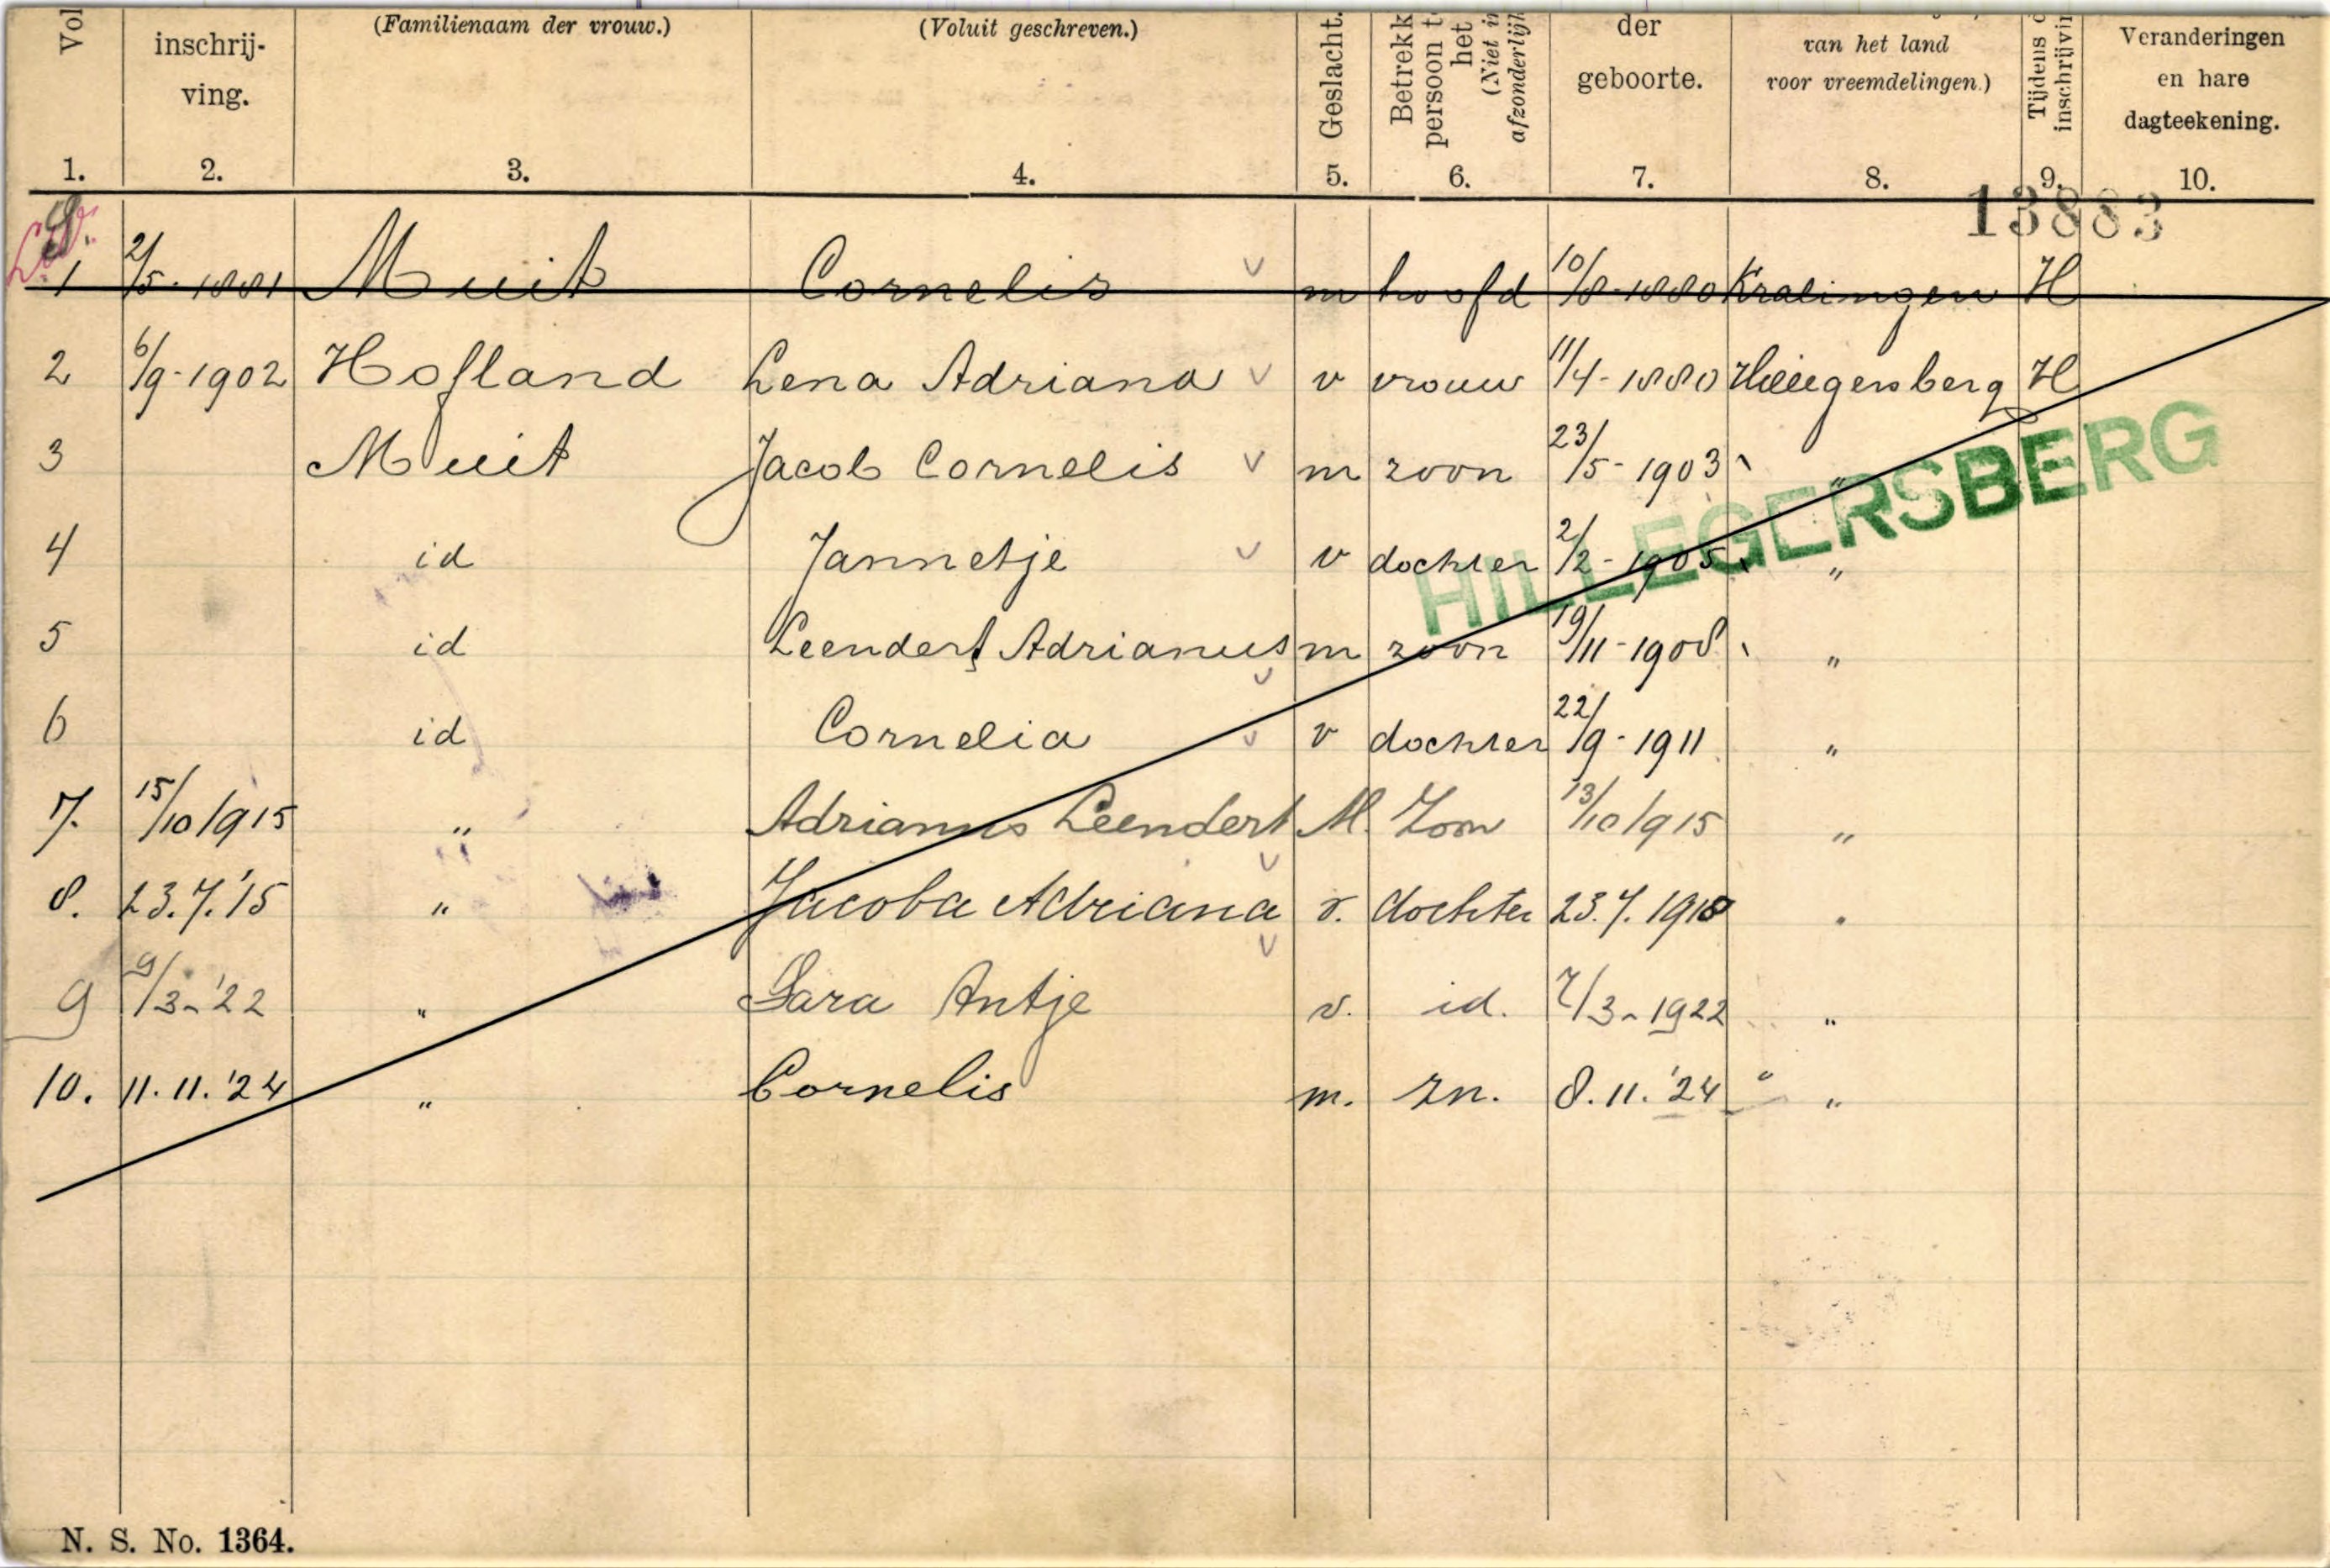 Vol
inschrij-
ving.
(Familienaam der vrouw.)
(Voluit geschreven.)
Geslacht.
Betrekk
persoon t
het
(Niet in
afzonderlijk
der
geboorte.
van het land
voor vreemdelingen.)
Tijdens
inschrijvin
Veranderingen
en hare
dagteekening.
1. 2. 3. 4. 5. 6. 7. 8. 9. 10.
13883
1 2/5-1881 Muit Cornelis m hoofd 10/8-1880 Kralingen H
2 6/9-1902 Hofland Lena Adriana v vrouw 11/4-1880 Hillegersberg H
3 Muit Jacob Cornelis m zoon 23/5-1903 "
4 id Jannetje v dochter 2/2-1905 "
HILLEGERSBERG
5 id Leendert Adrianus m zoon 19/11-1908 "
6 id Cornelia v dochter 22/9-1911 "
7. 15/10/915 " Adrianus Leendert M. Zoon 13/10/915 "
8. 23.7.'15 " Jacoba Adriana v. dochter 23.7.1918 "
9 9/3-'22 " Sara Antje v. id. 7/3-1922 "
10. 11.11.'24 " Cornelis m. zn. 8.11.'24 "
N. S. No. 1364.